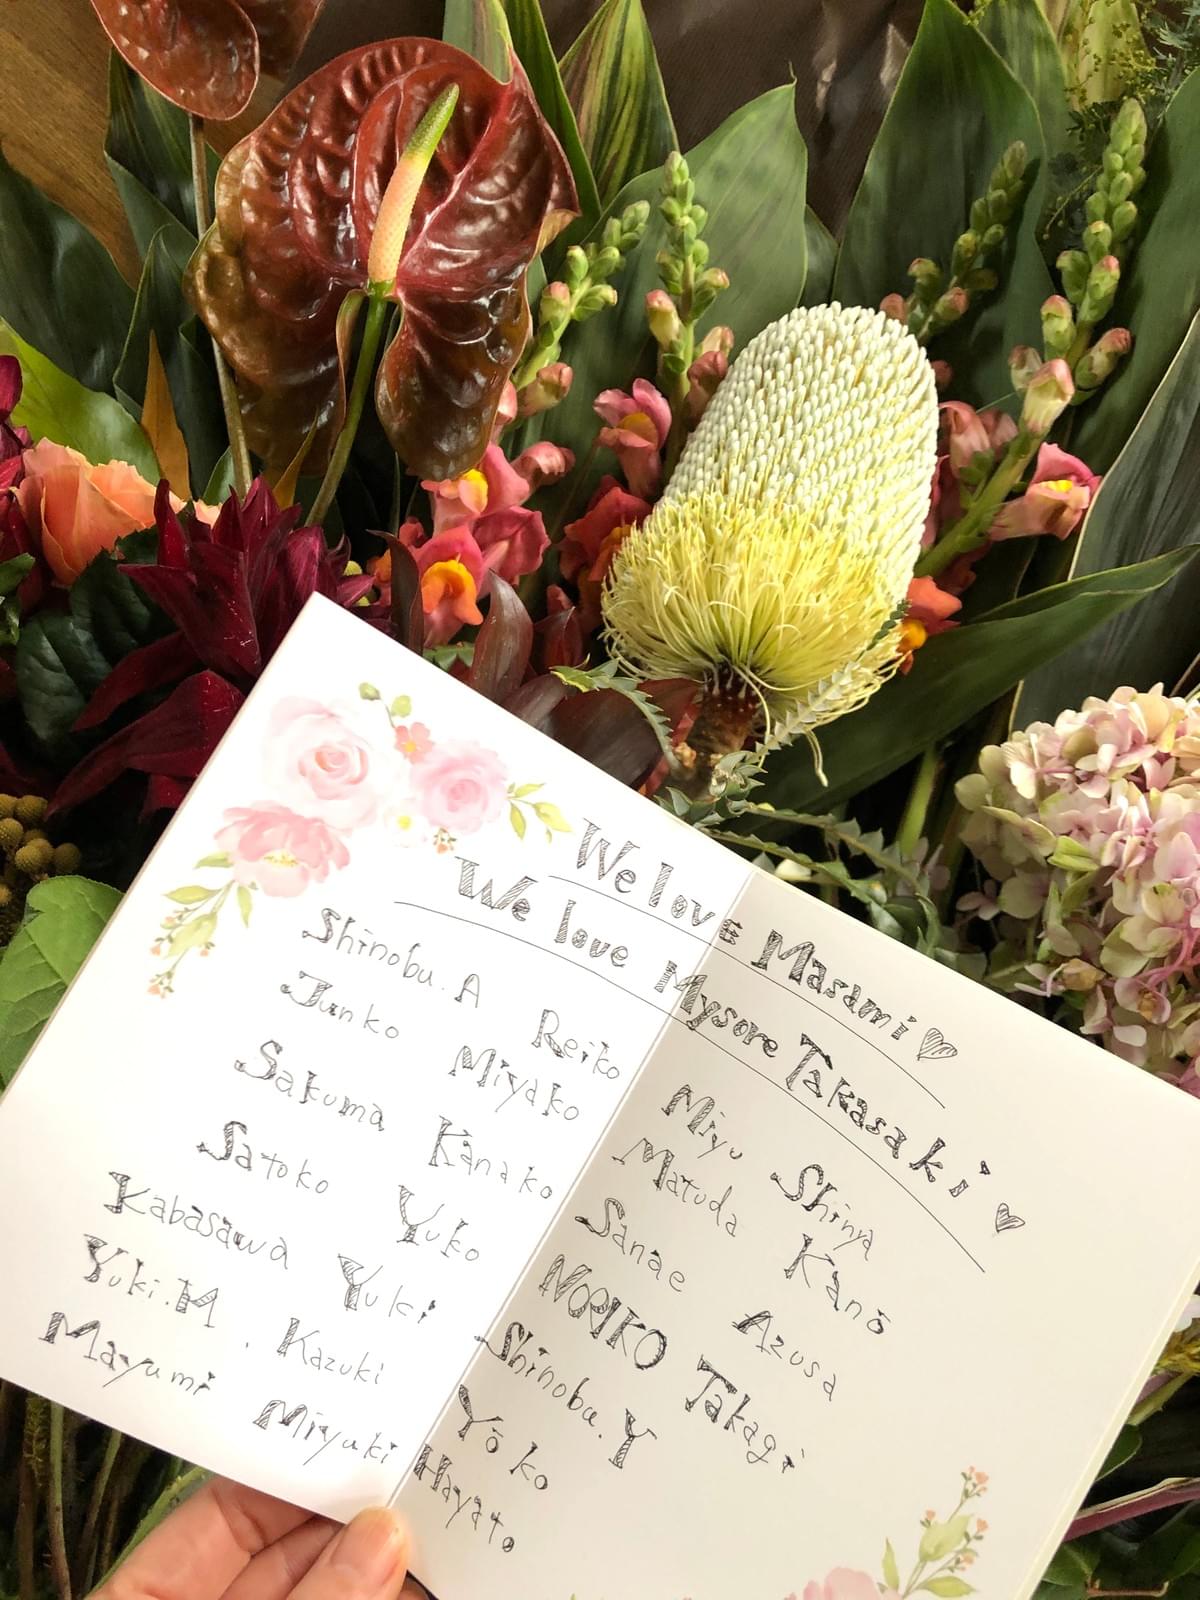 We love Masami♡
We love Mysore Takasaki♡
Shinobu.A Reiko
Junko Miyako
Sakuma Kanako
Satoko Yuko
Kabasawa Yuki
Yuki.M . Kazuki
Mayumi Miyuki
Miyu Shinya
Matuda Kanō
Sanae Azusa
NORIKO Takagi
Shinobu.Y
Yōko
Hayato